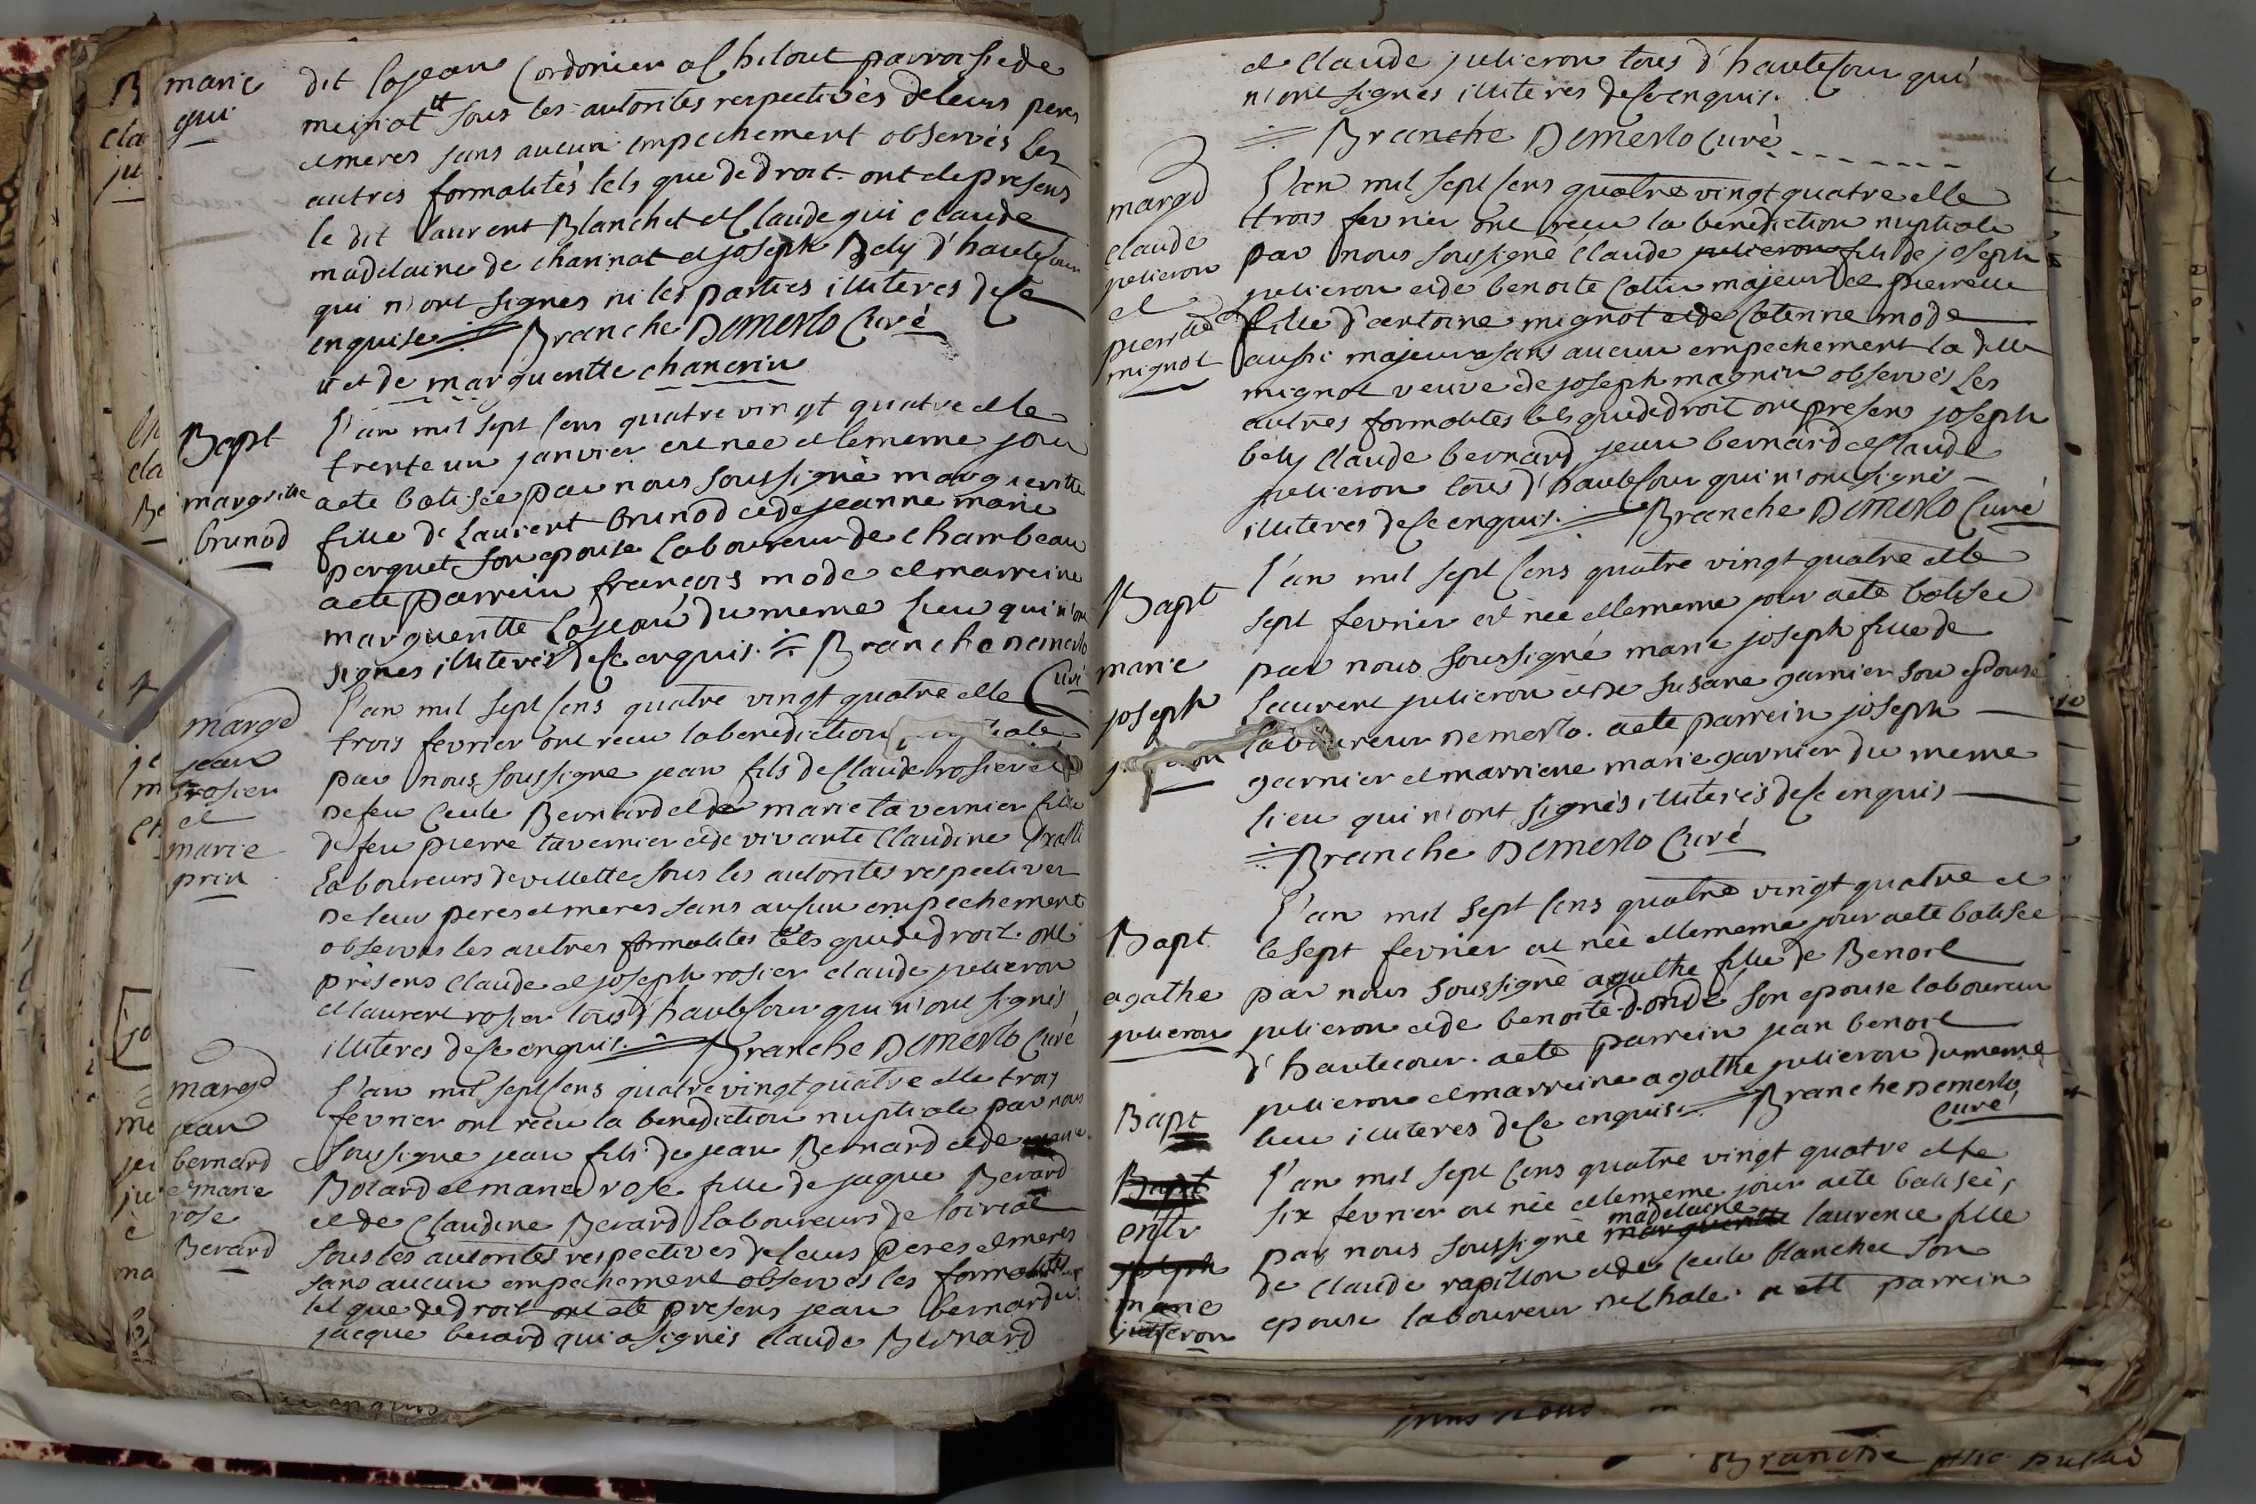 marie
gui
dit lojean Cordonier a Chilout parroisse de
meiriat tt sous les autorites respectivès de leurs peres
et meres sans aucun empechement observés les
autres formalités tels que de droit. ont ete presens
le dit laurent Blanchet et Claude gui claude
madelaine de charinat et joseph Bely d'hautecour
qui n'ont signes ni les parties illiteres de ce
enquise Branche Demerlo Curé
tt et de margueritte chanerin
Bapt
margritte
brunod
l'an mil sept Cens quatre vingt quatre et le
trente un janvier est neé et le meme jour
a eté batiseé par nous soussigné margueritte
fille de Laurent brunod et de jeanne marie
perquet son epouse laboureur de chambeau
a eté parrein françois mode et marreine
marguerite lojean du meme lieu qui n'ont
signes illiterés de ce enquis. Branche Demerlo
Curé
marge
jean
rosier
et
marie
prin
l'an mil sept Cens quatre vingt quatre et le
trois fevrier ont recu la benediction
par nous soussigne jean fils de Claude rosier et
de feu Ceule Bernard et de marie tavernier fille
de feu pierre tavernier et de vivante Claudine
laboureurs de villette sous les autorites respectives
de leur peres et meres sans aucun empechement
observés les autres formalites tels que de droit. ont
présens Claude et joseph rosier claude julieron
et laurent rosier tous d'hautecour qui n'ont signés
illiteres de ce enquis. Branche Demerlo Curé
marge
jean
bernard
et marie
rose
Berard
l'an mil sept Cens quatre vingt quatre et le trois
fevrier ont recu la benediction nuptiale par nous
soussigne jean fils de jean Bernard et de
Bolard et marie rose fille de jaque Berard
et de Claudine Berard laboureurs de loiriat
sous les autorités respectives de leurs peres et meres
sans aucun empechement observés les formalités
tel que de droit ont ete presens jean bernard
jacque berard qui a signés claude Bernard
et Claude julieron tous d'hautecour qui
n'ont signés illiterés de ce enquis.
Branche Demerlo Curé
marge
claude
julieron
et
pierrette
mignot
l'an mil sept Cens quatre vingt quatre et le
trois fevrier ont recu la benediction nuptiale
par nous soussigné Claude julieron fils de joseph
julieron et de benoite Colin majeur et pierrette
fille d'antoine mignot et de Catenne mode
aussi majeure sans aucun empechement la dette
mignot veuve de joseph magnin observés les
autres formalites tels que de droit ont presens joseph
bely Claude bernard jean bernard et Claude
julieron tous d'hautecour qui n'ont signés
illiteres de ce enquis. Branche Demerlo Curé
Bapt
marie
joseph
l'an mil sept Cens quatre vingt quatre et le
sept fevrier est neé et le meme jour a eté batiseé
par nous soussigné marie joseph fille de
laurent julieron et de susane garnier son epouse
laboureur Demerlo. a eté parrein joseph
garnier et marriene marie garnier du meme
lieu qui n'ont signés illiterés de ce enquis
Branche Demerlo Curé
Bapt
agathe
julieron
l'an mil sept Cens quatre vingt quatre et
le sept fevrier est neé et le meme jour a eté batiseé
par nous soussigné agathe fille de Benoit
julieron et de benoite dondé son epouse laboureur
d'hautecour. a eté parrein jean benoit
julieron et marreine agathe julieron du meme
lieu illiteres de ce enquis. Branche Demerlo
Curé
Bapt
Bapt
entr
joseph
marie
julieron
l'an mil sept Cens quatre vingt quatre et le
six fevrier est neé et le meme jour a eté batiseé
par nous soussigné margueritte madelaine laurence fille
de Claude rapillon et de Ceule blanchet son
epouse laboureur de Chale. a eté parrein